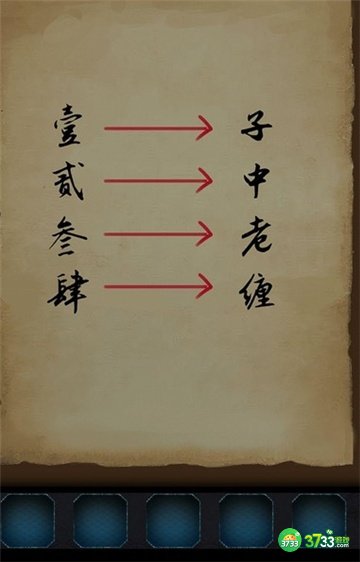 壹 → 子
贰 → 中
叁 → 老
肆 → 缠
3733 3733游戏